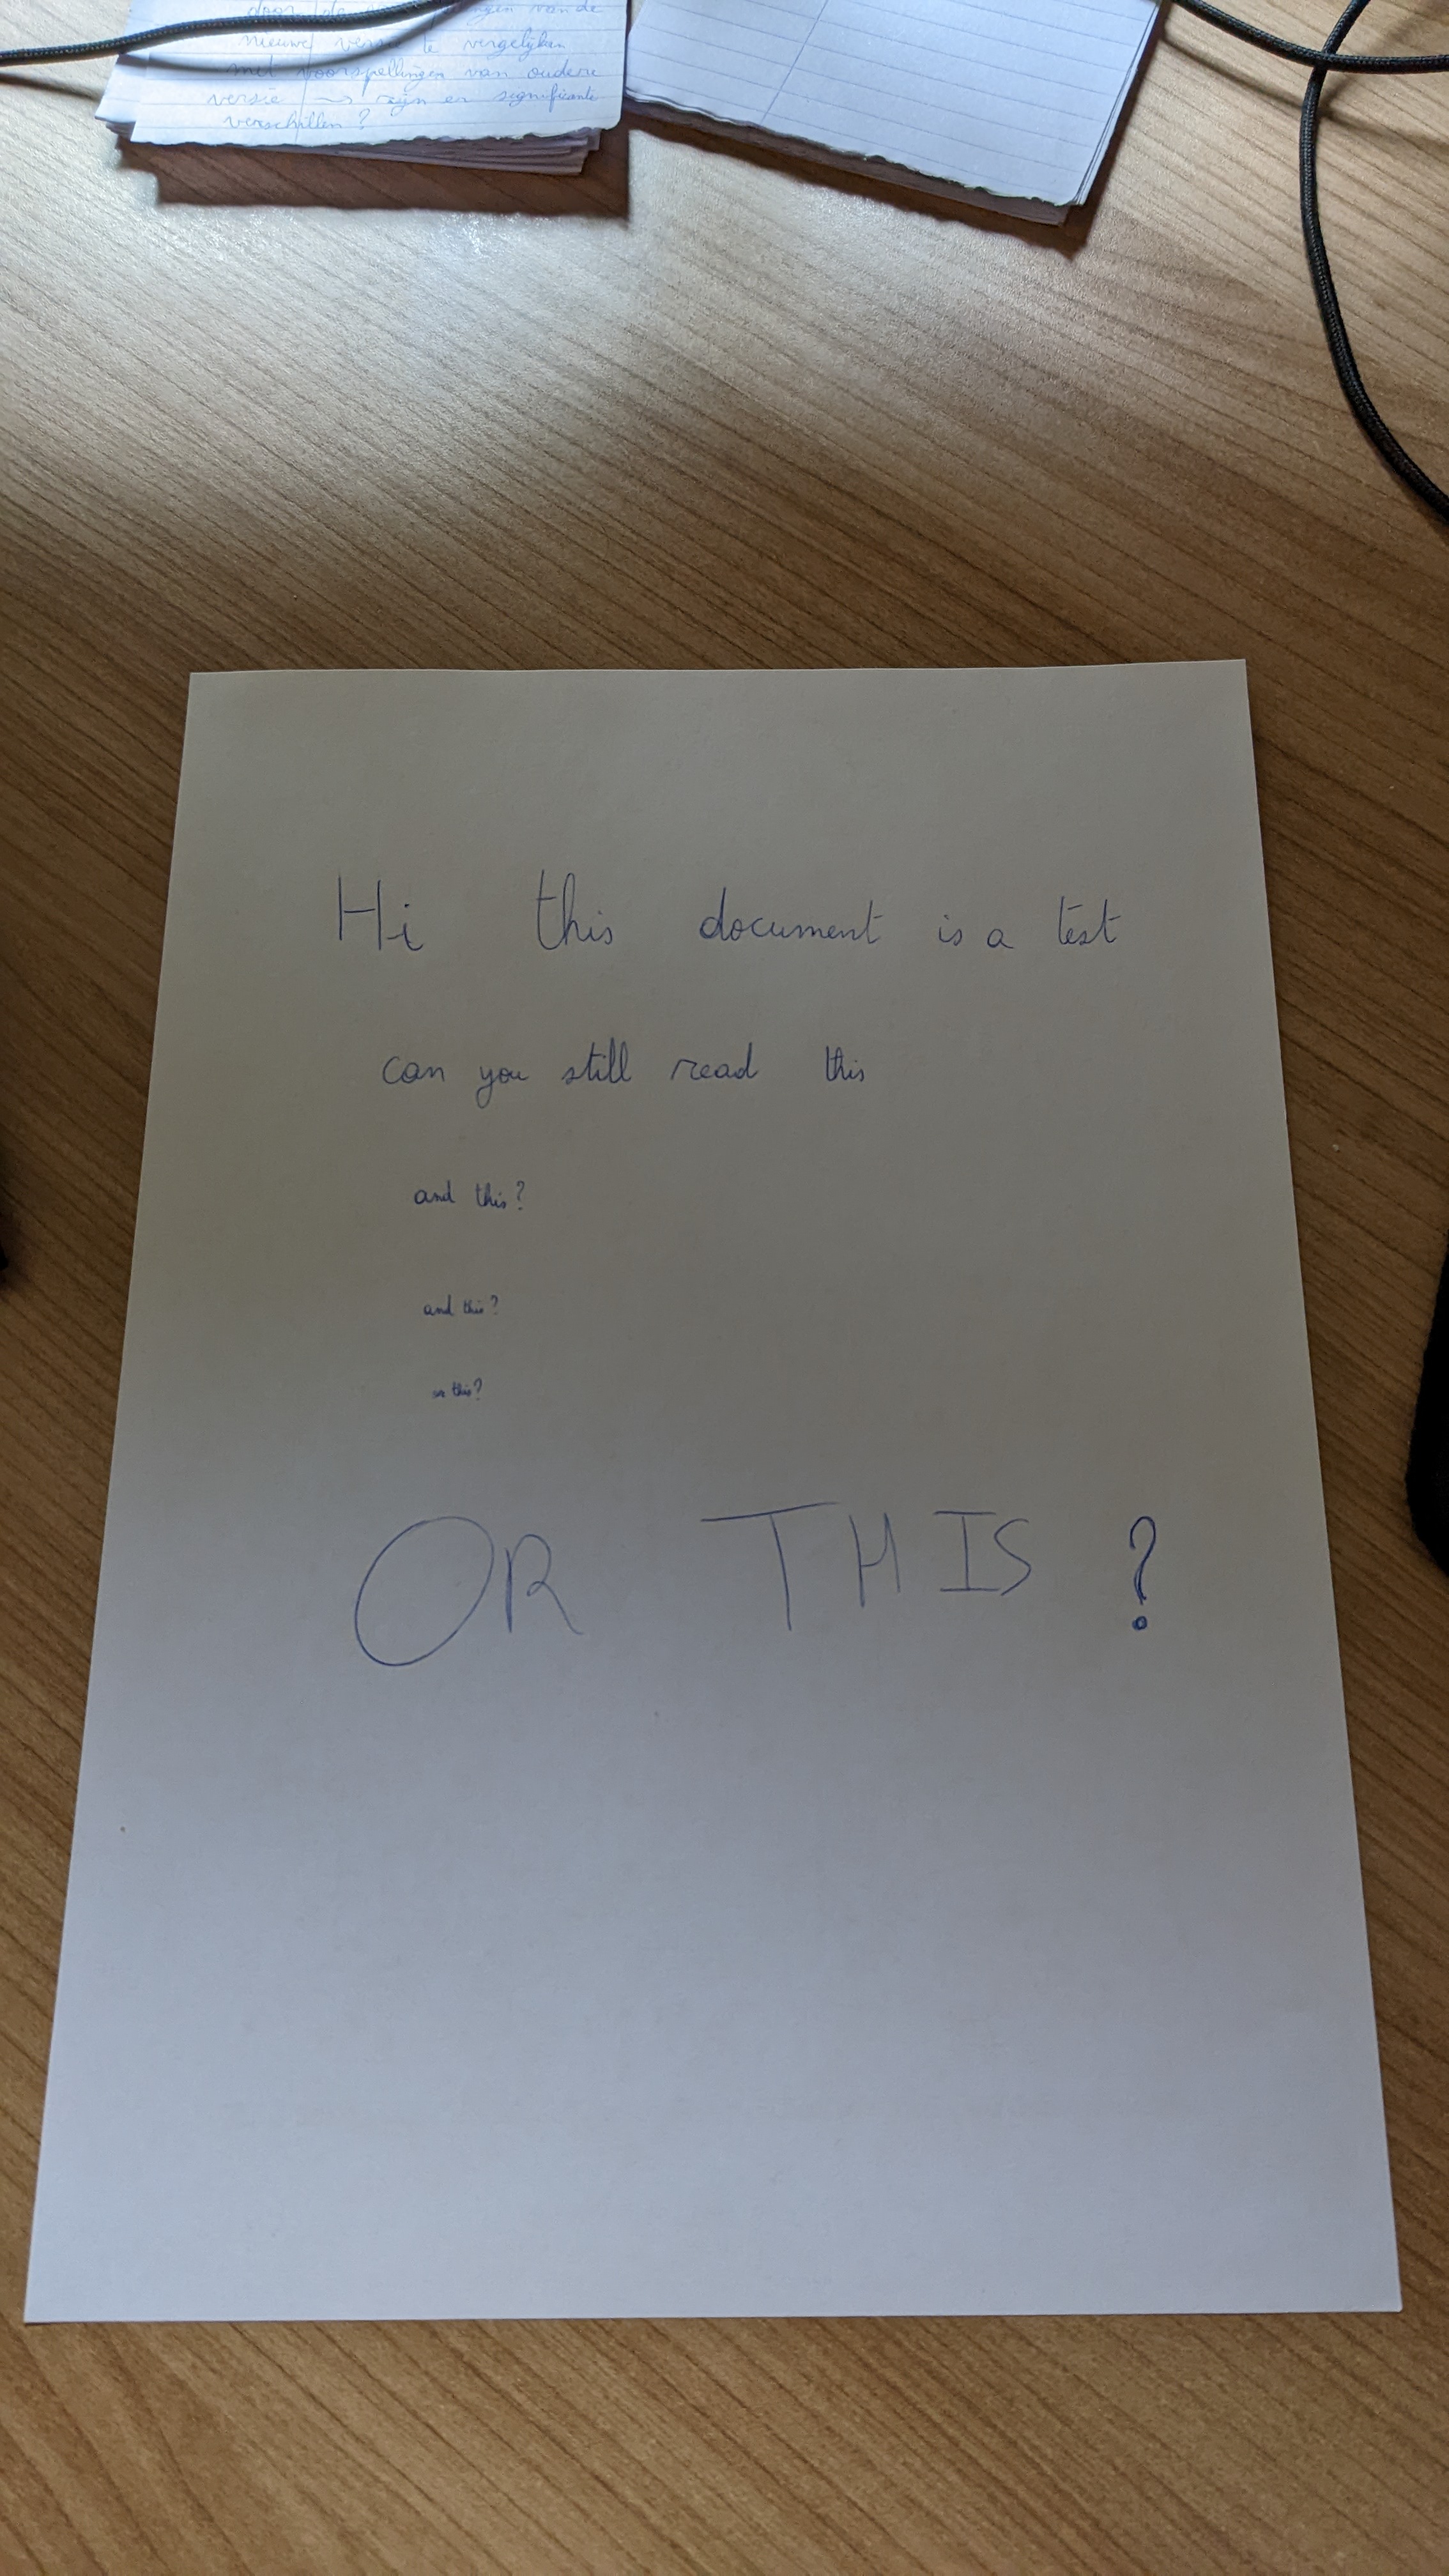 nieuwe te vergelijken
met voorspellingen van oudere
versie → zijn er significante
verschillen?
Hi this document is a test
can you still read this
and this?
and this?
or this?
OR THIS ?